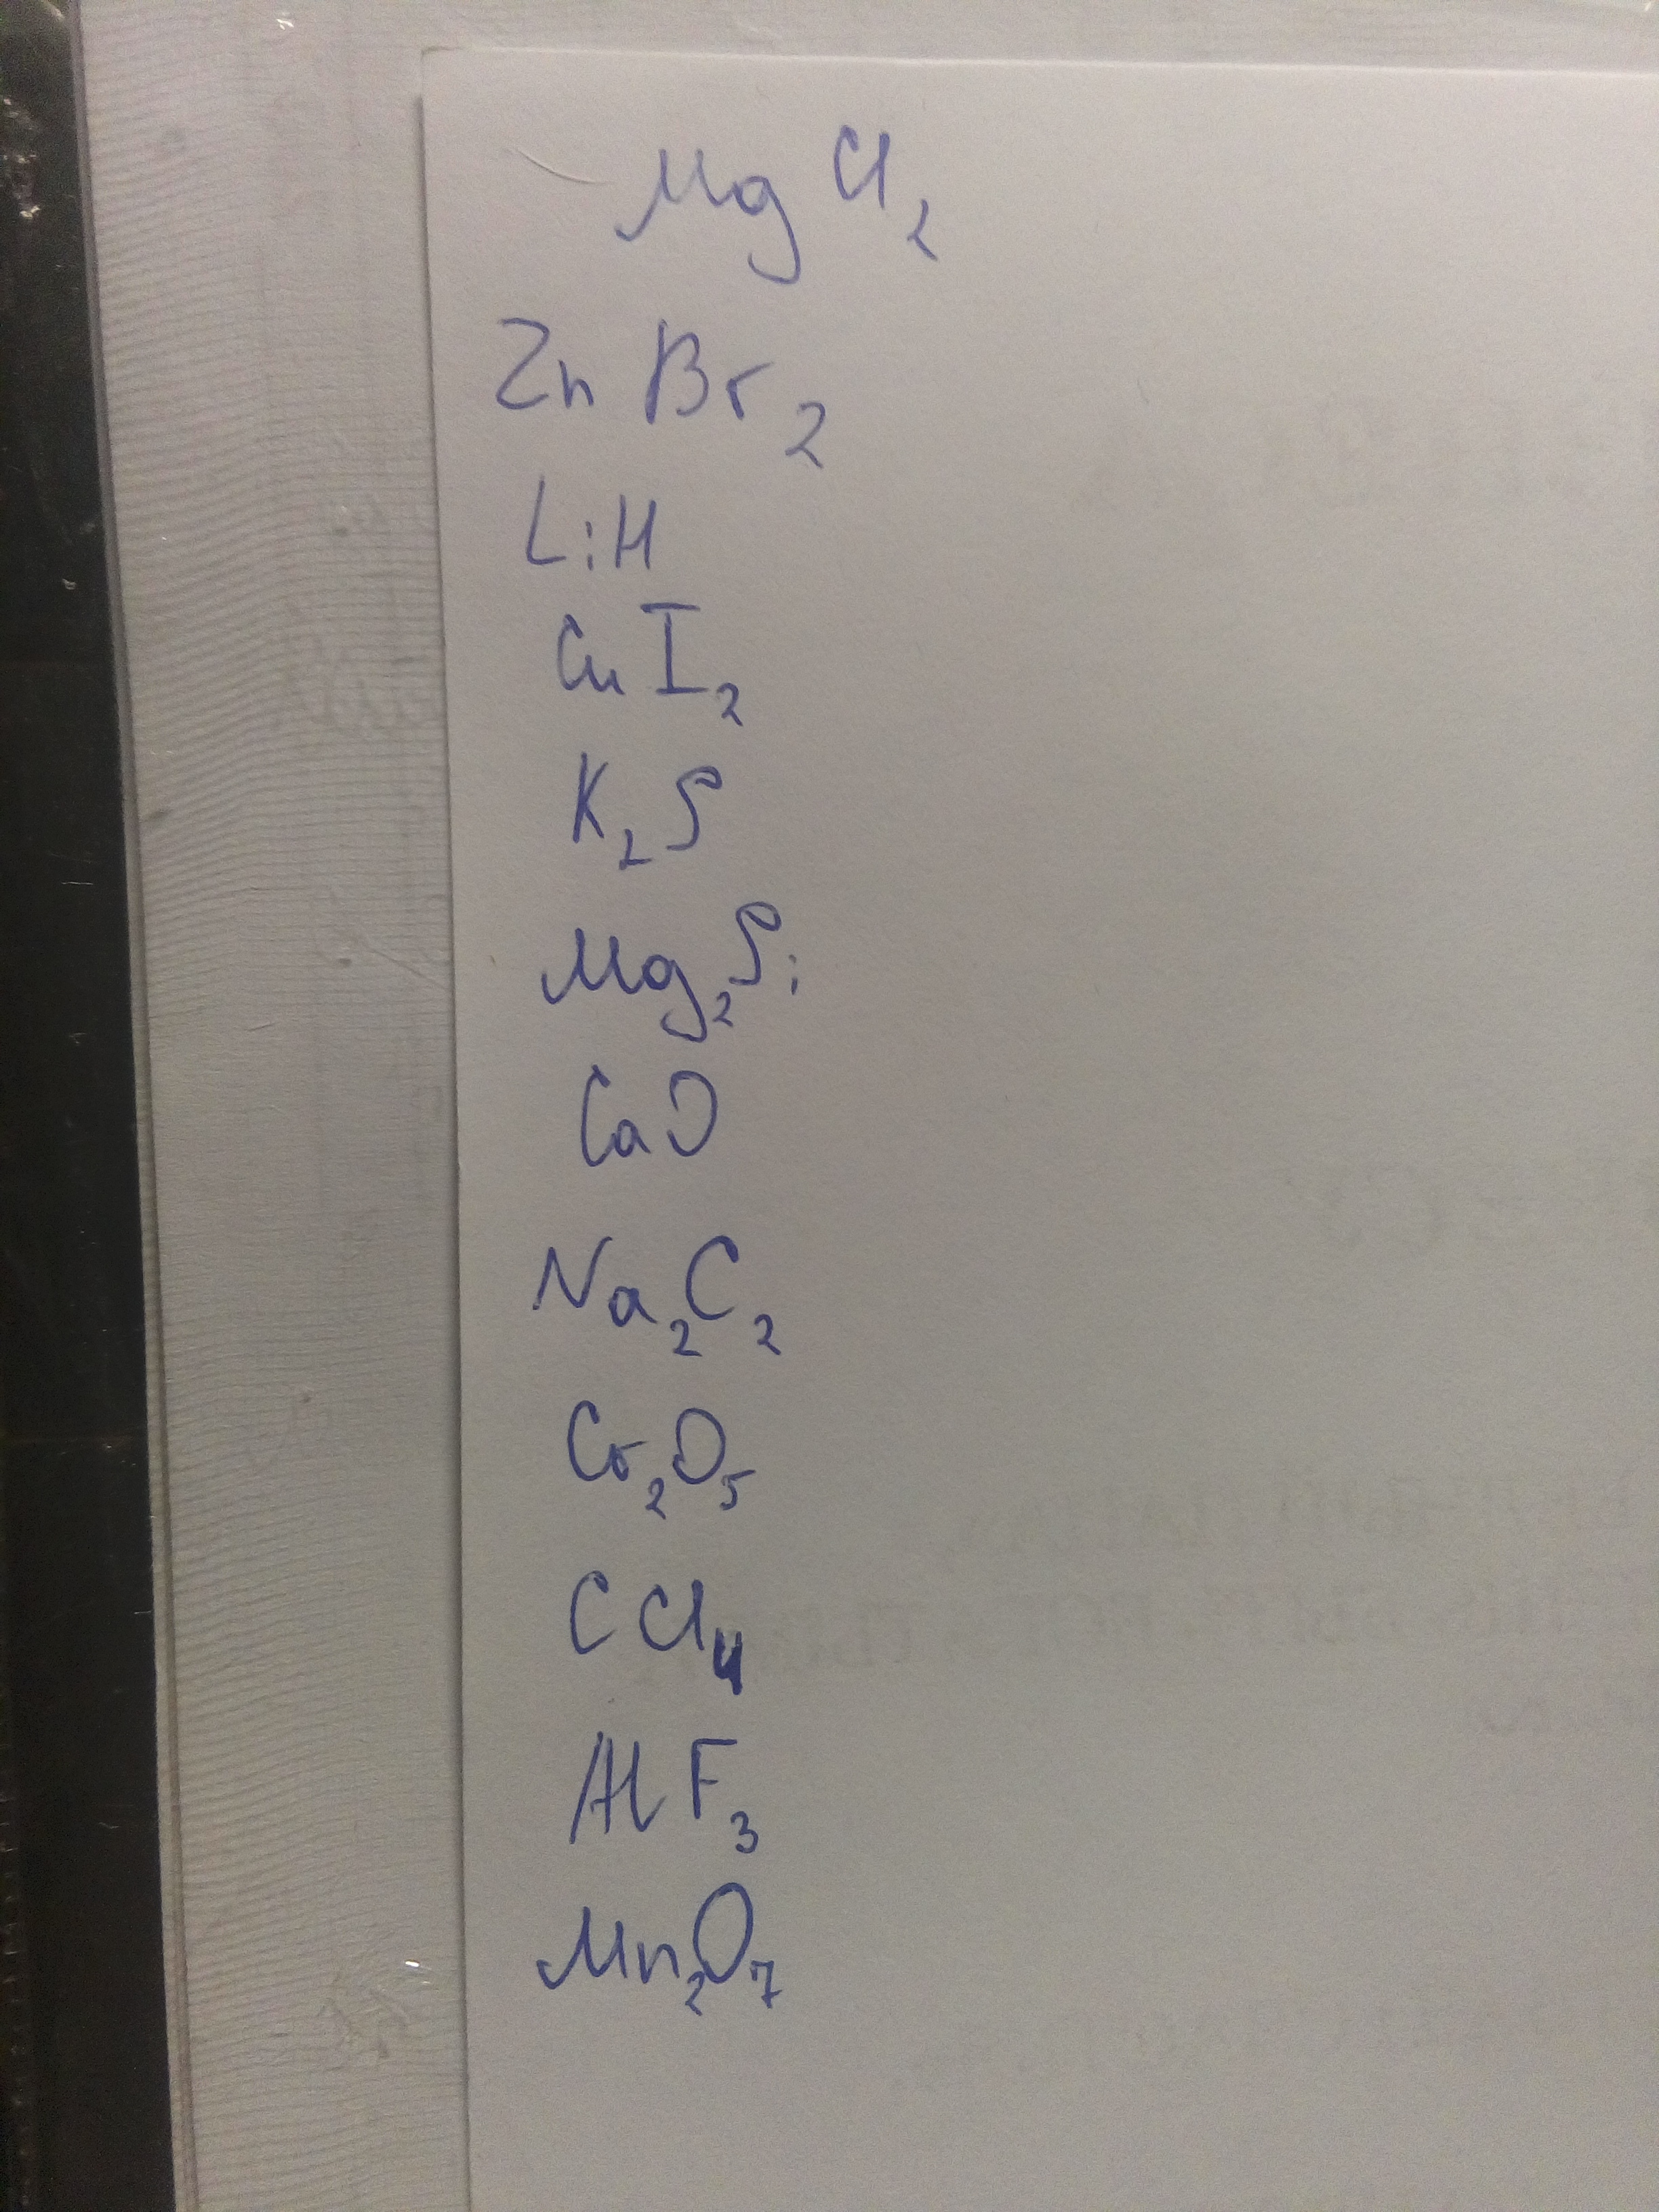 MgCl₂
ZnBr₂
LiH
CuI₂
K₂S
Mg₂Si
CaO
Na₂C₂
Cr₂O₅
CCl₄
AlF₃
Mn₂O₇